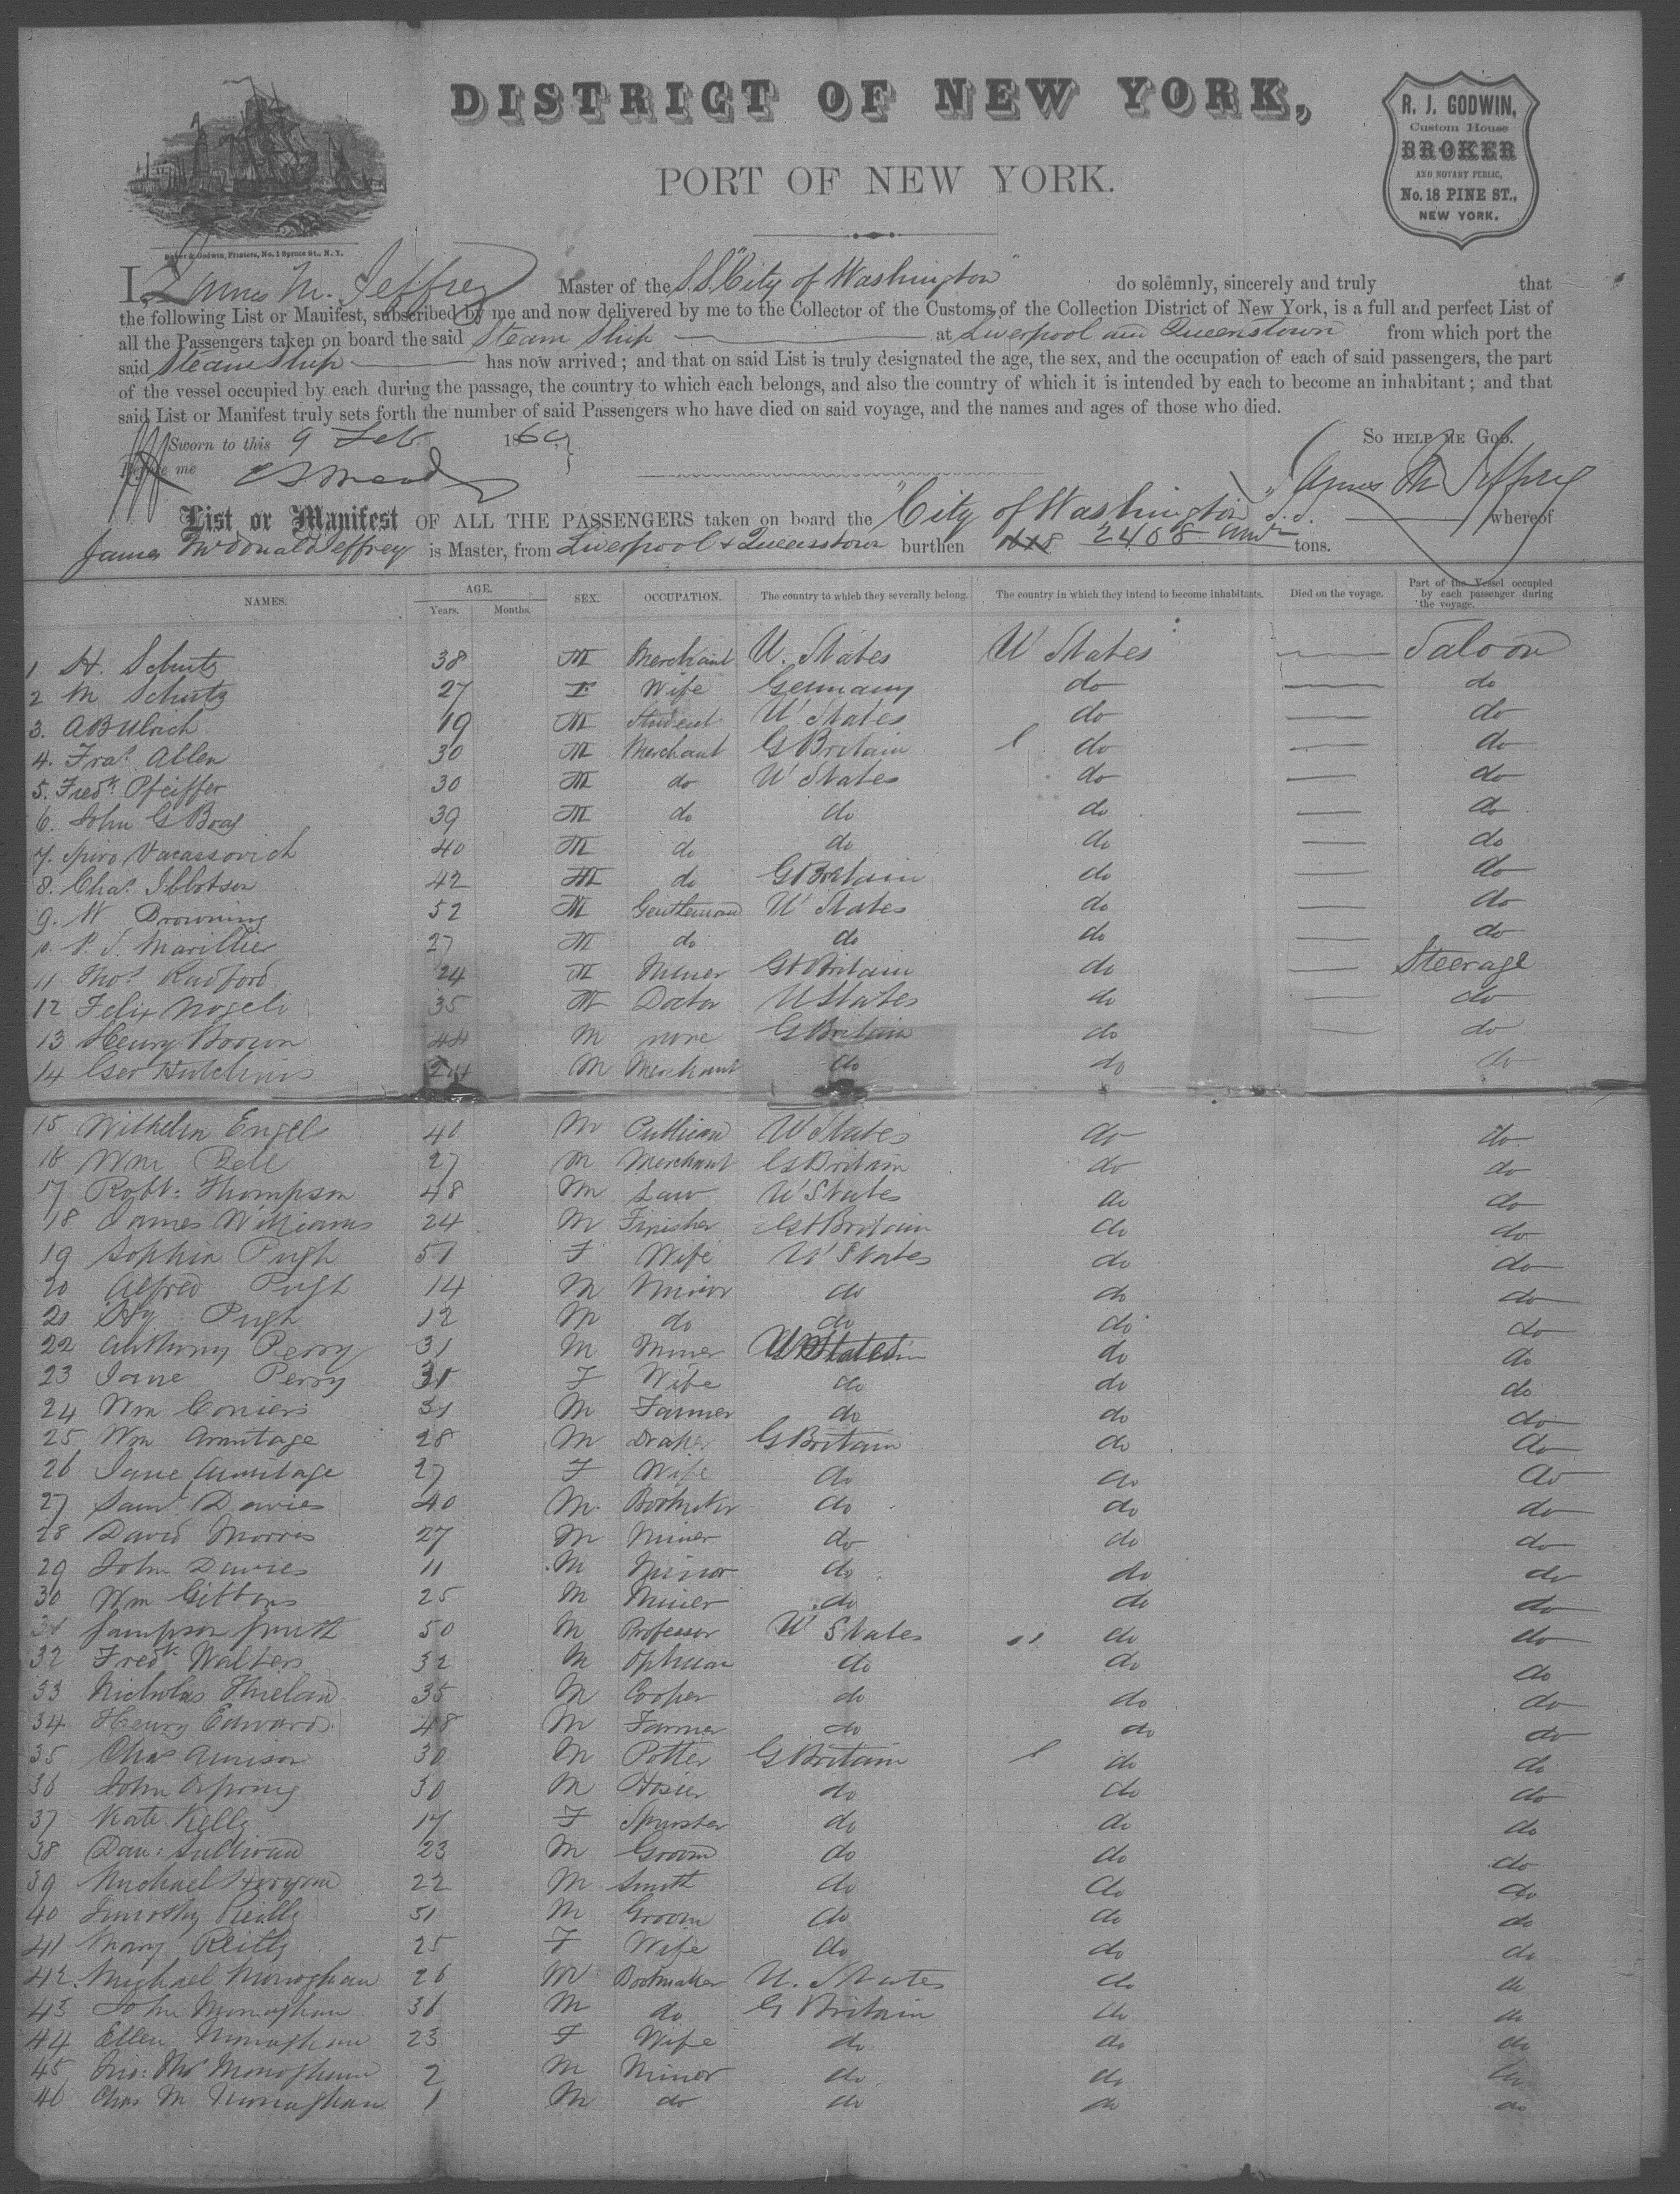 DISTRICT OF NEW YORK,
PORT OF NEW YORK.
Baker & Godwin, Printers, No. 1 Spruce St., N. Y.
R. J. GODWIN,
Custom House
BROKER
AND NOTARY PUBLIC,
No. 18 PINE ST.,
NEW YORK.
I, James M. Jeffrey Master of the S.S. "City of Washington" do solemnly, sincerely and truly that
the following List or Manifest, subscribed by me and now delivered by me to the Collector of the Customs of the Collection District of New York, is a full and perfect List of
all the Passengers taken on board the said Steam Ship at Liverpool and Queenstown from which port the
said Steam Ship has now arrived; and that on said List is truly designated the age, the sex, and the occupation of each of said passengers, the part
of the vessel occupied by each during the passage, the country to which each belongs, and also the country of which it is intended by each to become an inhabitant; and that
said List or Manifest truly sets forth the number of said Passengers who have died on said voyage, and the names and ages of those who died.
Sworn to this 9 Feb 1869 So HELP ME GOD.
Before me James M Jeffrey
List or Manifest OF ALL THE PASSENGERS taken on board the "City of Washington" s.s. whereof
James McDonald Jeffrey is Master, from Liverpool & Queenstown burthen 2408 tons.
NAMES. AGE. Years. Months. SEX. OCCUPATION. The country to which they severally belong. The country in which they intend to become inhabitants. Died on the voyage. Part of the Vessel occupied by each passenger during the voyage.
1 H. Schutz 38 M Merchant U. States U States Saloon
2 M Schutz 27 F Wife Germany do do
3. A B Ulrich 19 M Student U States do do
4. Fras. Allen 30 M Merchant G Britain do do
5. Fredk. Pfeiffer 30 M do U States do do
6. John G Boag 39 M do do do do
7. Spiro Vacassovich 40 M do do do do
8. Chas. Ibbotson 42 M do Gt Britain do do
9. W Browning 52 M Gentleman U States do do
10. P. S. Marillier 27 M do do do do
11 Thos. Radford 24 M Miner Gt Britain do Steerage
12 Felix Nogeli 35 M Doctor U States do do
13 Henry Brown 44 M none G Britain do do
14 Geo Hutchins 24 M Merchant do do do
15 Wilhelm Engels 40 M Publican U States do do
16 Wm Bell 27 M Merchant G Britain do do
17 Robt: Thompson 48 M Law U States do do
18 James Williams 24 M Finisher Gt Britain do do
19 Sophia Pugh 51 F Wife U States do do
20 Alfred Pugh 14 M Minor do do do
21 Hy Pugh 12 M do do do do
22 Anthony Perry 31 M Miner U States do do
23 Jane Perry 31 F Wife do do do
24 Wm 31 M Farmer do do do
25 Wm Armitage 28 M Draper G Britain do do
26 Jane Armitage 27 F Wife do do do
27 Saml. Davies 40 M Bootmaker do do do
28 David Morris 27 M Miner do do do
29 John Davies 11 M Minor do do do
30 Wm Gibbons 25 M Miner do do do
31 Sampson Smith 50 M Professor U States do do
32 Fredk. Walters 32 M Optician do do do
33 Nicholas 35 M Cooper do do do
34 Henry Edwards 48 M Farmer do do do
35 Chas Amison 30 M Potter G Britain do do
36 John 30 M Hosier do do do
37 Kate Kelly 17 F Spinster do do do
38 Dan: Sullivan 23 M Groom do do do
39 Michael 22 M Smith do do do
40 Timothy Reilly 51 M Groom do do do
41 Mary Reilly 25 F Wife do do do
42. Michael Monoghan 26 M Bootmaker U. States do do
43 John Monoghan 36 M do G Britain do do
44 Ellen Monoghan 23 F Wife do do do
45 Jno: Thos Monoghan 2 M Minor do do do
46 Chas M Monoghan 1 M do do do do